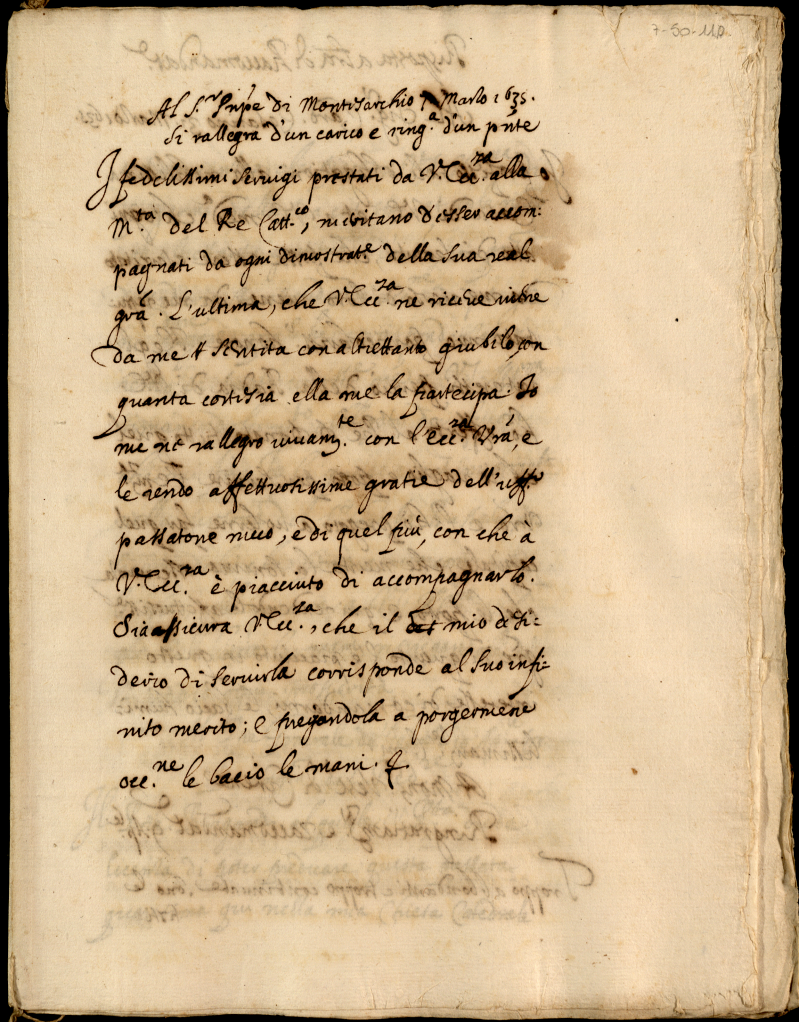 7-50-110
Al S.r Pnpe di Montisarchio 7 Marzo 1635.
Si rallegra d'un carico e ring.a d'un pnte
I fedelissimi servigi prestati da V. Ecc.za alla
M.ta del Re Catt.co, meritano d'esser accom:
pagnati da ogni dimostrat.e della sua real
gra. L'ultima, che V. Ecc.za ne riceve viene
da me sentita con altrettanto giubilo, con
quanta cortesia ella me la partecipa. Io
me ne rallegro vivam.te con l'Ecc.za Vra, e
le rendo affettuosissime gratie dell'uff.o
passatone meco, e di quel più, con che à
V. Ecc.za è piacciuto di accompagnarlo.
Sia assicura V. Ecc.za, che il mio desi:
derio di servirla corrisponde al suo infi:
nito merito; e pregandola a porgermene
occ.ne le bacio le mani.